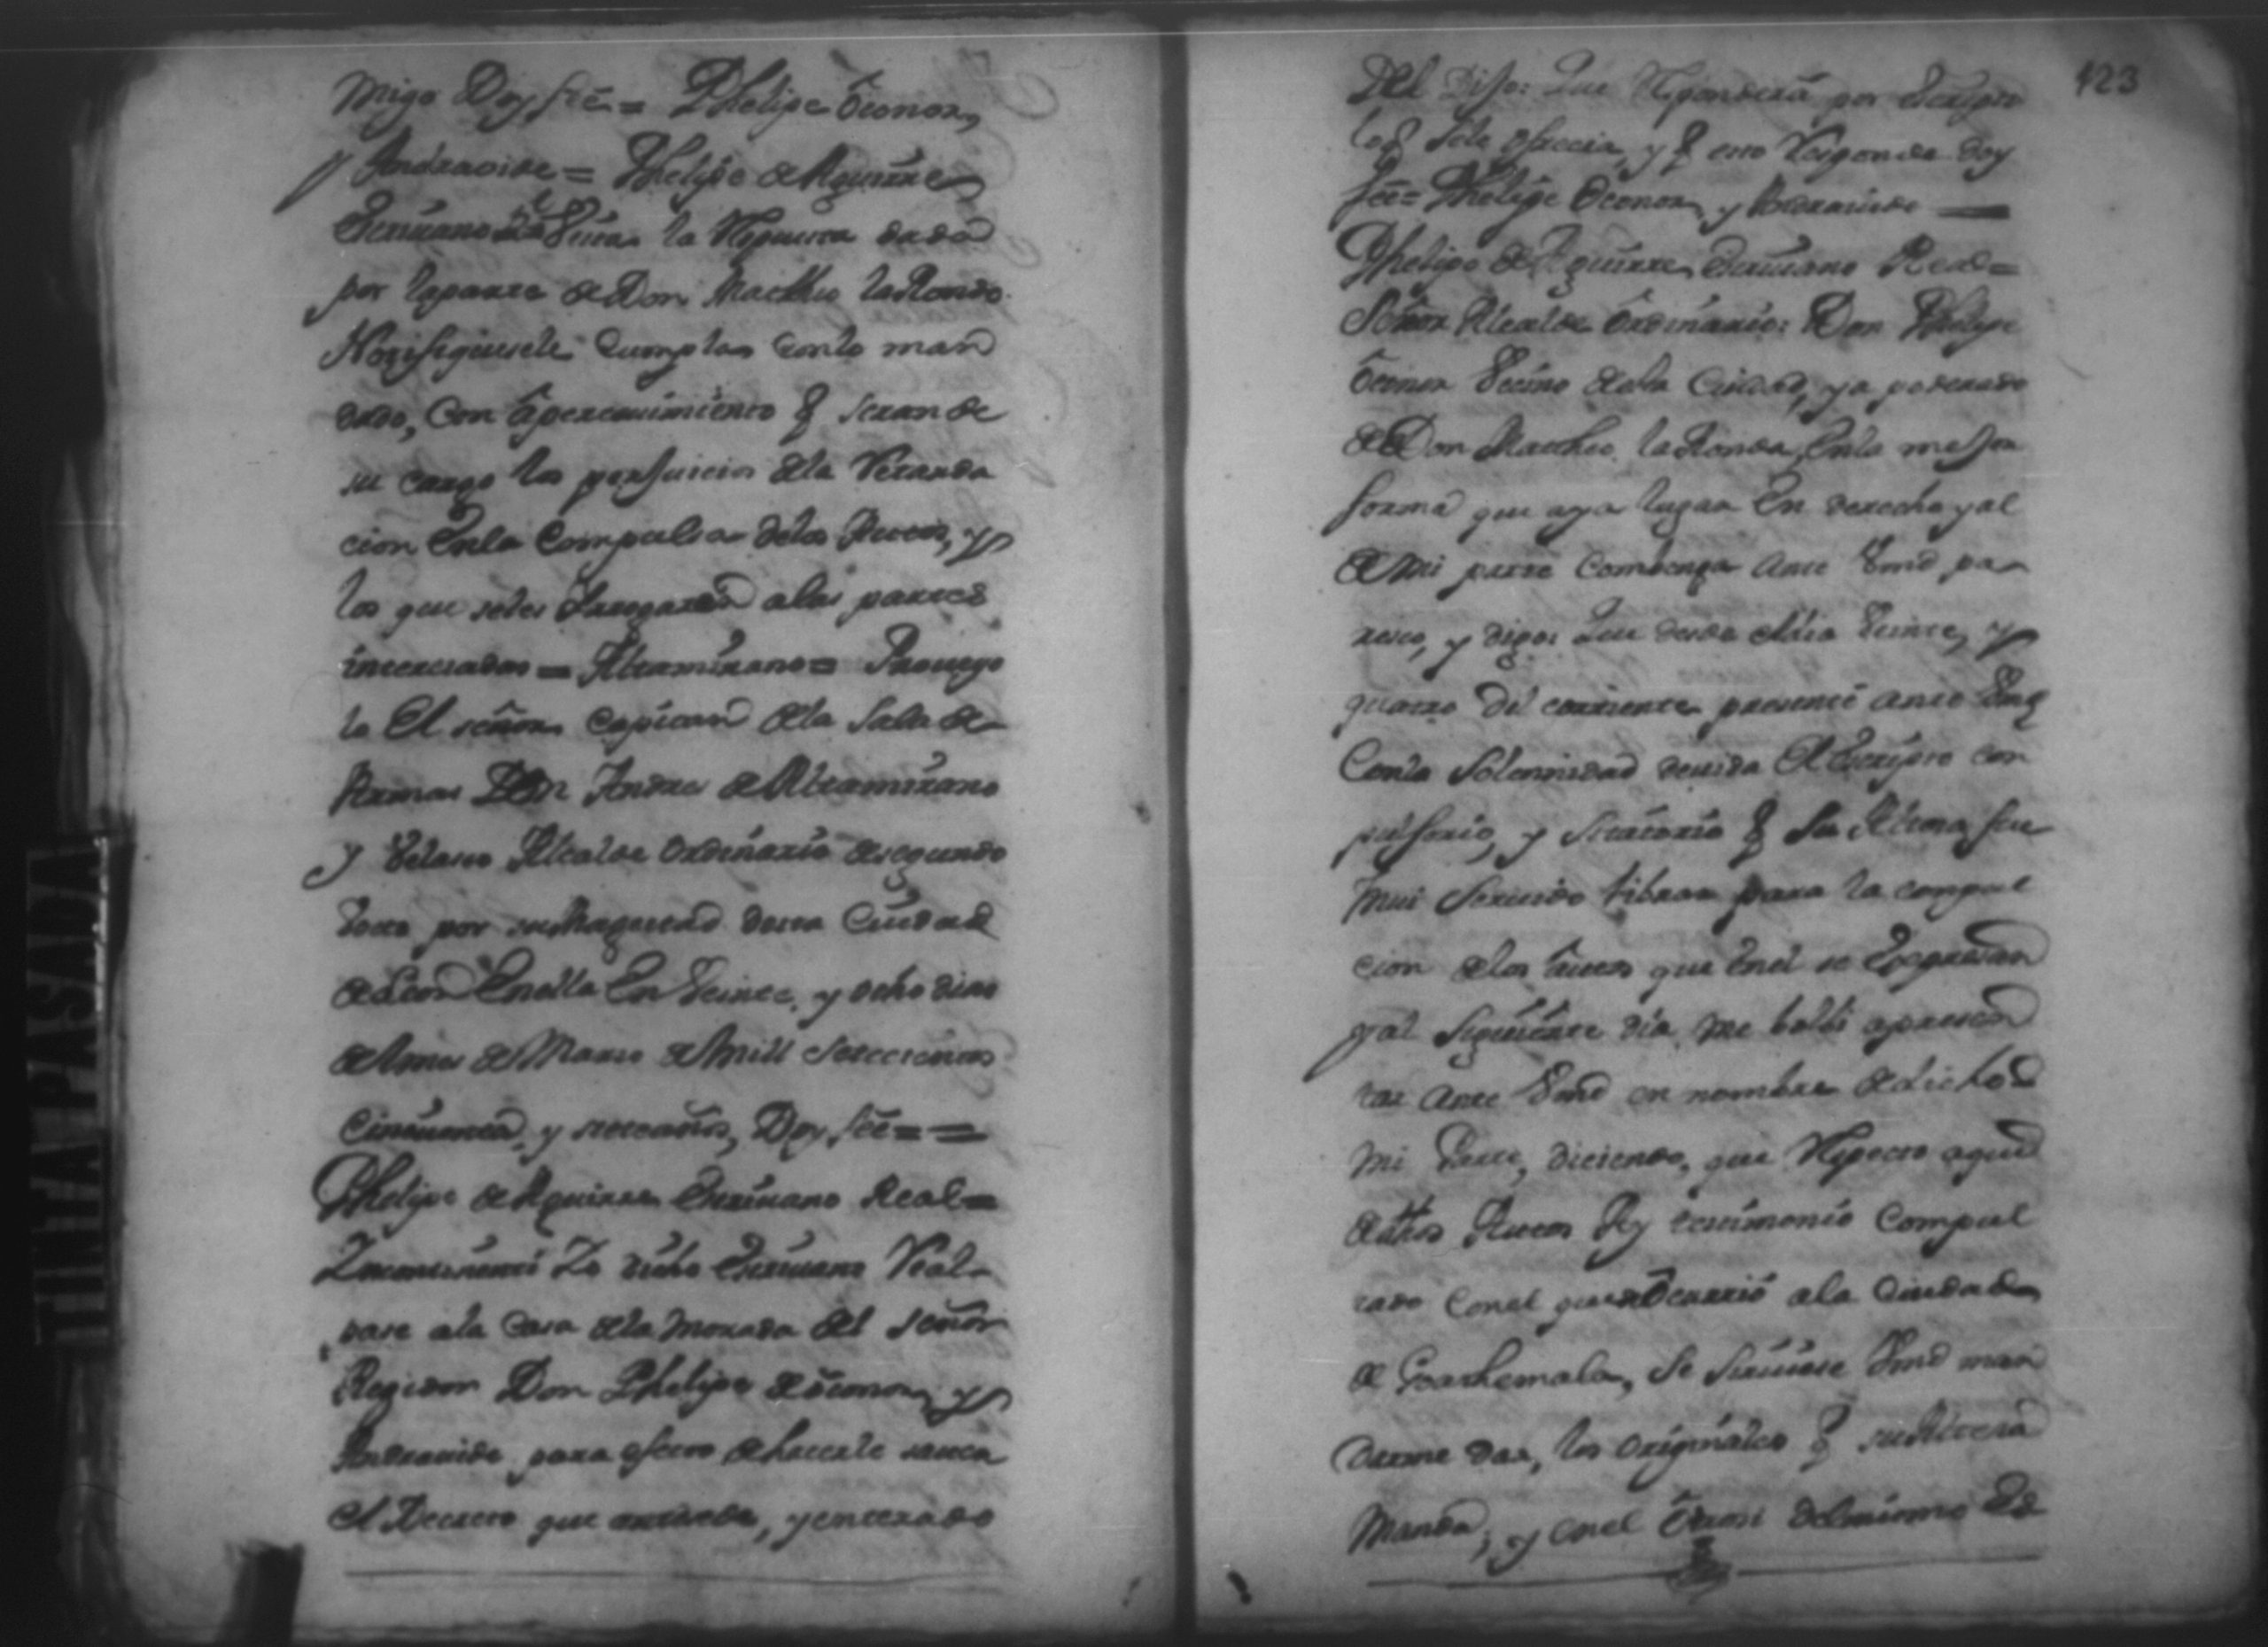 migo Doy feé = Phelipe Oconor,
y Andraoide = Phelipe de Aguirre
Escriuano Rl Vista la Respuesta dada
por la parte de Don Matheo la Ronda
Notifiquesele Cumpla con lo man
dado, Con apercevimiento q seran de
su cargo los perjuicios de la Retarda
cion en la Compulsa de los Autos, y
los que seles Irrogaren a las partes
interesadas = Altamirano = Proueyo
lo El señor Capitan de la Sala de
Armas Don Andres de Altamirano
y Velasco Alcalde ordinario de segundo
Voto por su Magestad desta Ciudad
de Leon En ella En Veinte, y ocho dias
del mes de Marzo de Mill setecientos
Cincuenta, y siete años, Doy feé = =
Phelipe de Aguirre Escriuano Real =
Yncontinenti Yo dicho Escriuano Real
pase a la Casa de la Morada del señor
Regidor Don Phelipe de Oconor, y
Andraoide para efecto de hacerle sauer
el Decreto que antesede, y enterado
123
Del Dijo: Que Responderá por Escripto
lo q sele ofrecia, y q esto Responde doy
feé = Phelipe Oconor, y Andraoide
Phelipe de Aguirre Escriuano Real =
Señor Alcalde Ordinario: Don Phelipe
Oconor Vecino de esta Ciudad, y apoderado
de Don Matheo la Ronda, En la mejor
forma que aya lugar En derecho y al
de mi parte Combenga ante Vmd pa
resco, y digo: Que desde el dia Veinte, y
quatro del corriente presente ante Vmd
Con la Solemnidad deuida El Escripto com
pulsorio, y Citatorio q Su Alteza fue
Mui Seruido librar para la compul
cion de los Autos que en el se Expresan
y al Siguiente dia me bolbi a presen
tar ante Vmd en nombre de dicho
mi Parte, diciendo, que Respecto a que
de dhos Autos Ay testimonio Compul
sado con el que se Ocurrió a la Ciudad
de Goathemala, Se Siruiese Vmd man
darme dar, los originales q su Alteza
Manda, y en el Otrosi del mismo Ed